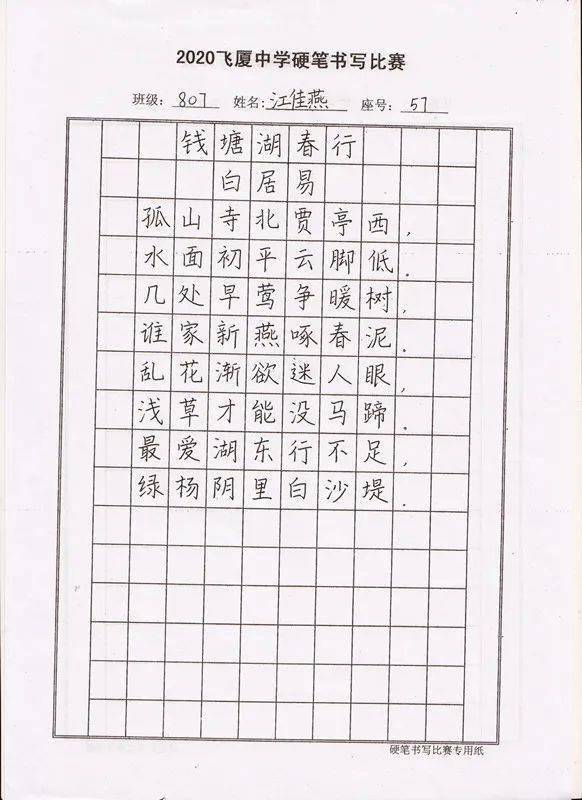 2020飞厦中学硬笔书写比赛
班级: 807 姓名: 江佳燕 座号: 57
钱塘湖春行
白居易
孤山寺北贾亭西,
水面初平云脚低.
几处早莺争暖树,
谁家新燕啄春泥.
乱花渐欲迷人眼,
浅草才能没马蹄.
最爱湖东行不足,
绿杨阴里白沙堤.
硬笔书写比赛专用纸